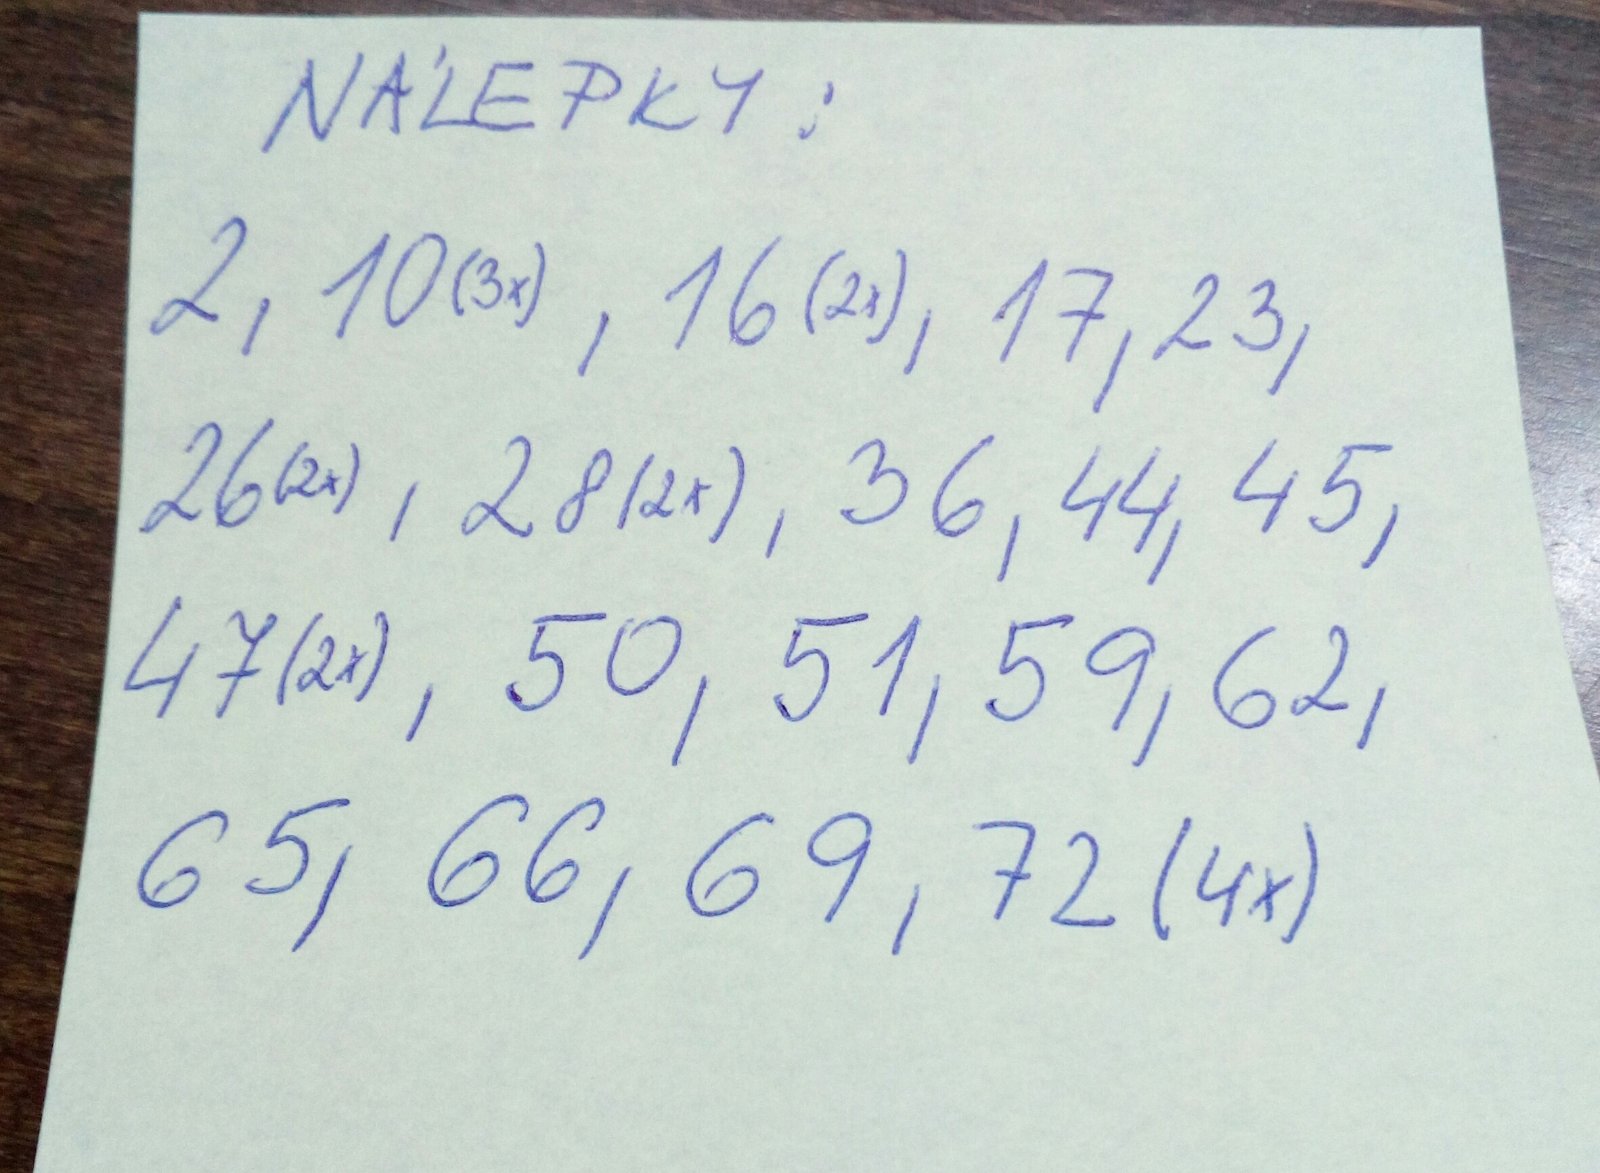 NÁLEPKY:
2, 10(3x), 16(2x), 17, 23,
26(2x), 28(2x), 36, 44, 45,
47(2x), 50, 51, 59, 62,
65, 66, 69, 72(4x)